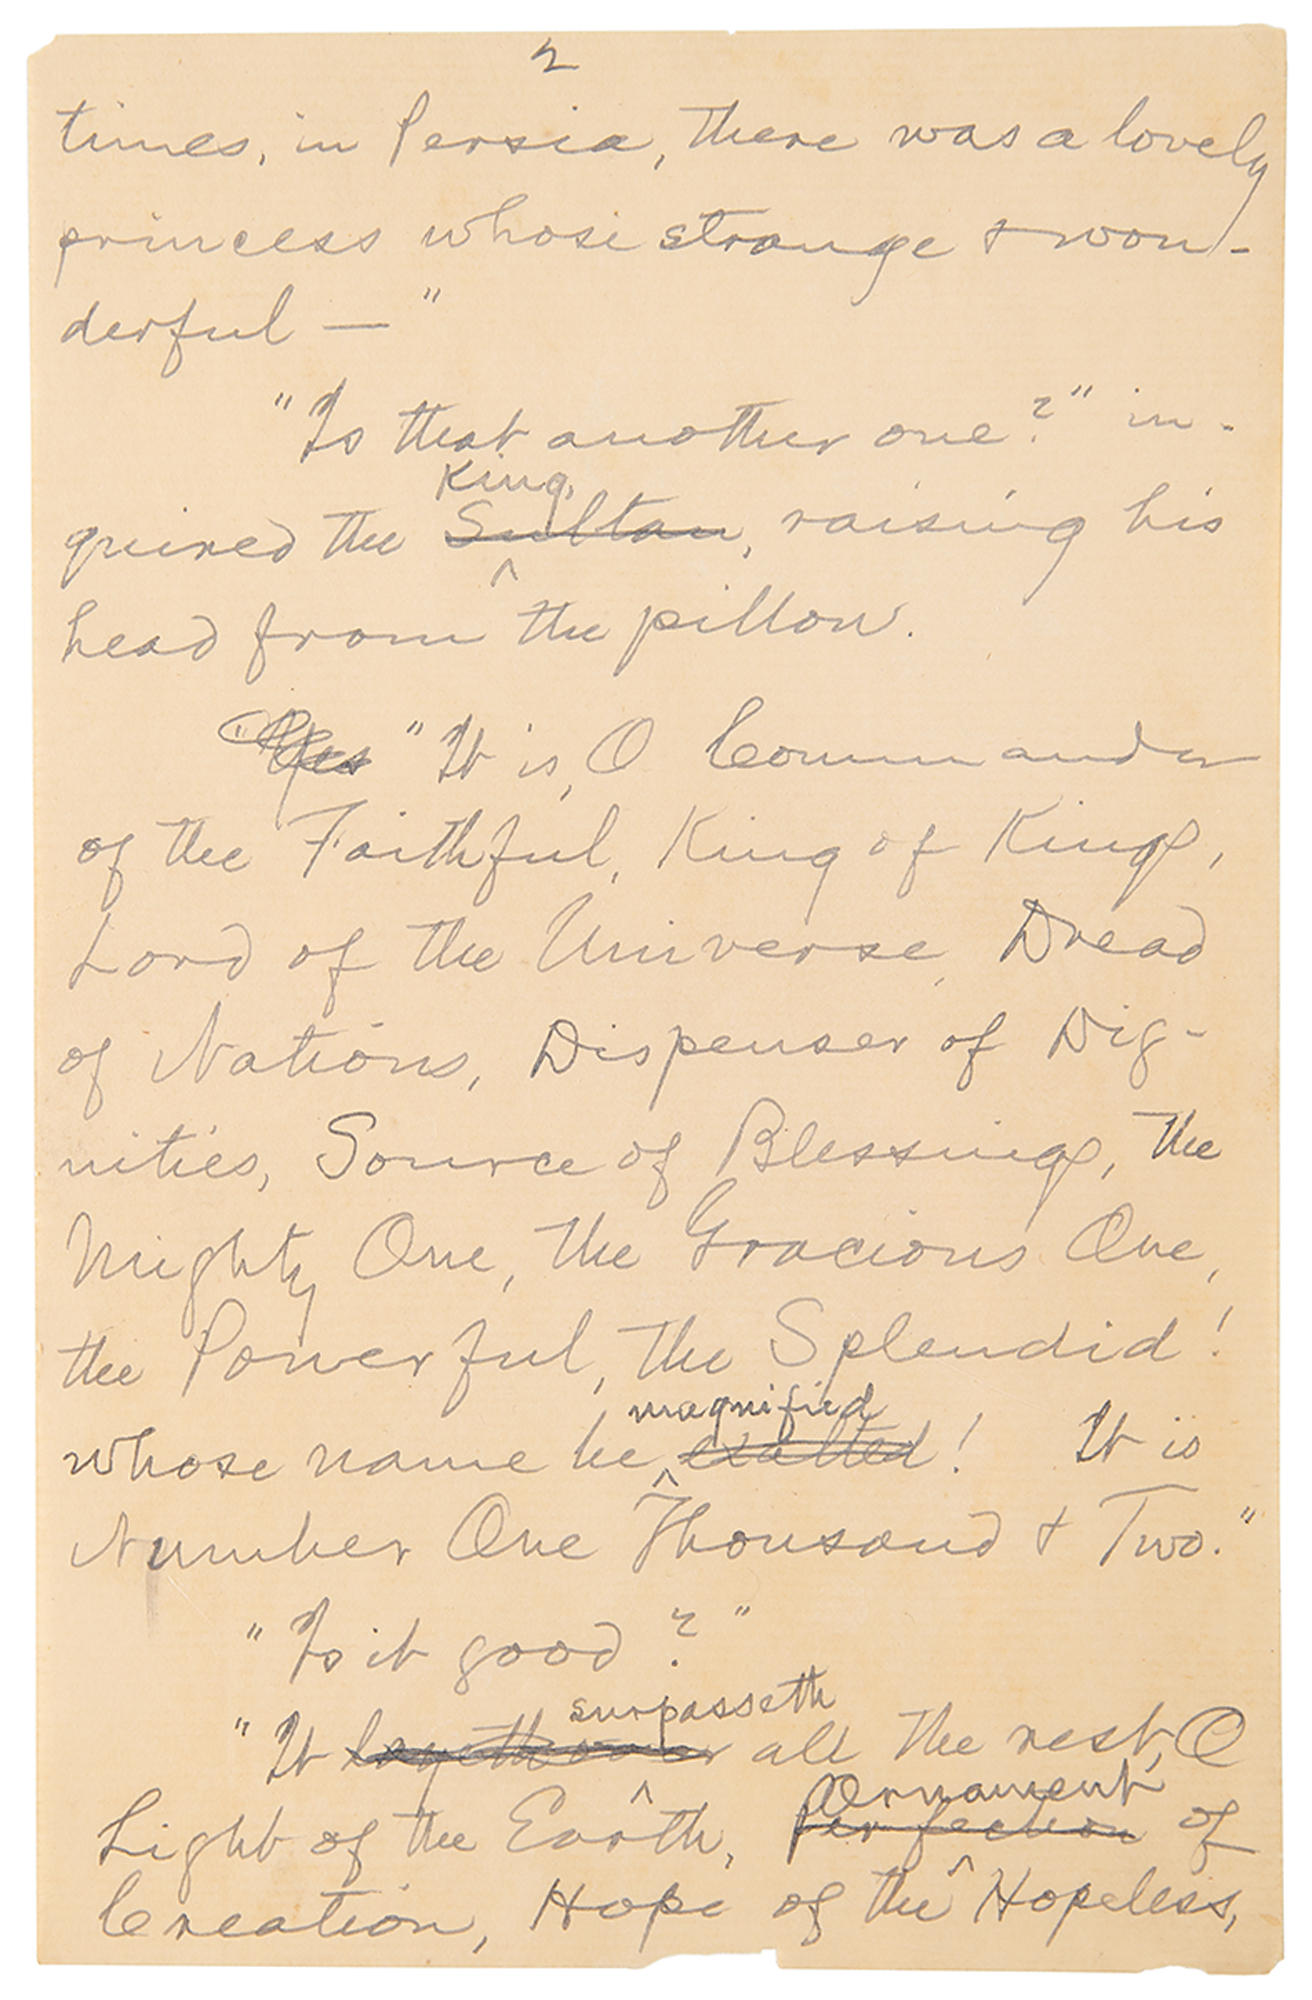 2
times, in Persia, there was a lovely
princess whose strange & won-
derful — "
"Is that another one?" in-
King,
quired the Sultan, raising his
head from the pillow.
"Yes "It is, O Commander
of the Faithful, King of Kings,
Lord of the Universe, Dread
of Nations, Dispenser of Dig-
nities, Source of Blessings, the
Mighty One, the Gracious One,
the Powerful, the Splendid!
magnified
whose name be exalted! It is
Number One Thousand & Two."
"Is it good?"
surpasseth
"It layeth over all the rest, O
Ornament
Light of the Earth, Perfection of
Creation, Hope of the Hopeless,